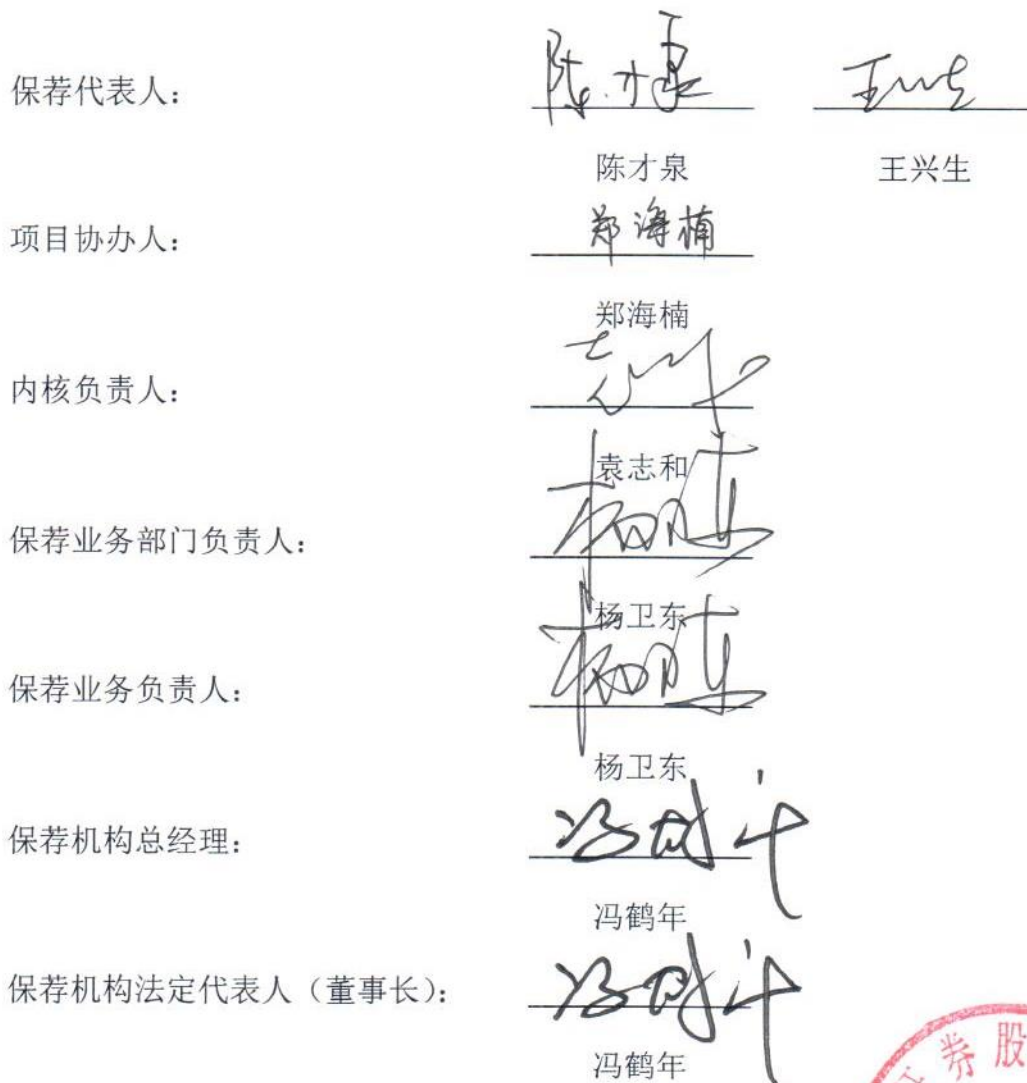 保荐代表人：
陈才泉 王兴生
陈才泉 王兴生
项目协办人：
郑海楠
郑海楠
内核负责人：
袁志和
保荐业务部门负责人：
杨卫东
杨卫东
保荐业务负责人：
杨卫东
杨卫东
保荐机构总经理：
冯鹤年
冯鹤年
保荐机构法定代表人（董事长）：
冯鹤年
冯鹤年
券股